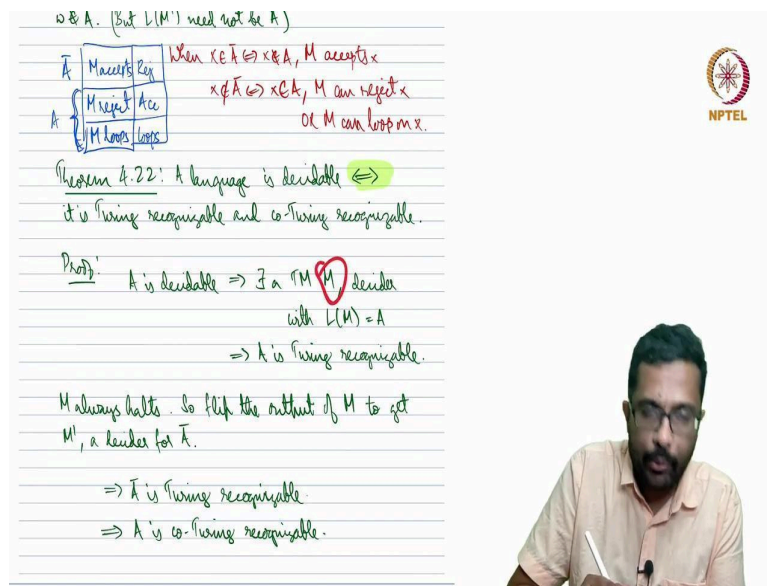 w∉A. (But L(M') need not be A)
Ā M accepts Rej When x∈Ā ⇔ x∉A, M accepts x
A M reject Acc x∉Ā ⇔ x∈A, M can reject x
M loops loops OR M can loop on x.
NPTEL
Theorem 4.22: A language is decidable ⇔
it is Turing recognizable and co-Turing recognizable.
Proof:
A is decidable ⇒ ∃ a TM M, decider
with L(M) = A
⇒ A is Turing recognizable.
M always halts. So flip the output of M to get
M', a decider for Ā.
⇒ Ā is Turing recognizable.
⇒ A is co-Turing recognizable.